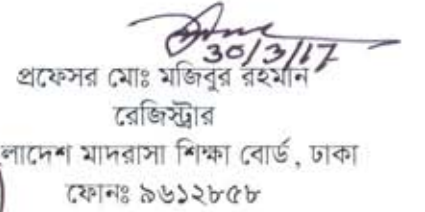 30/3/17
প্রফেসর মোঃ মজিবুর রহমান
রেজিস্ট্রার
লাদেশ মাদরাসা শিক্ষা বোর্ড, ঢাকা
ফোনঃ ৯৬১২৮৫৮